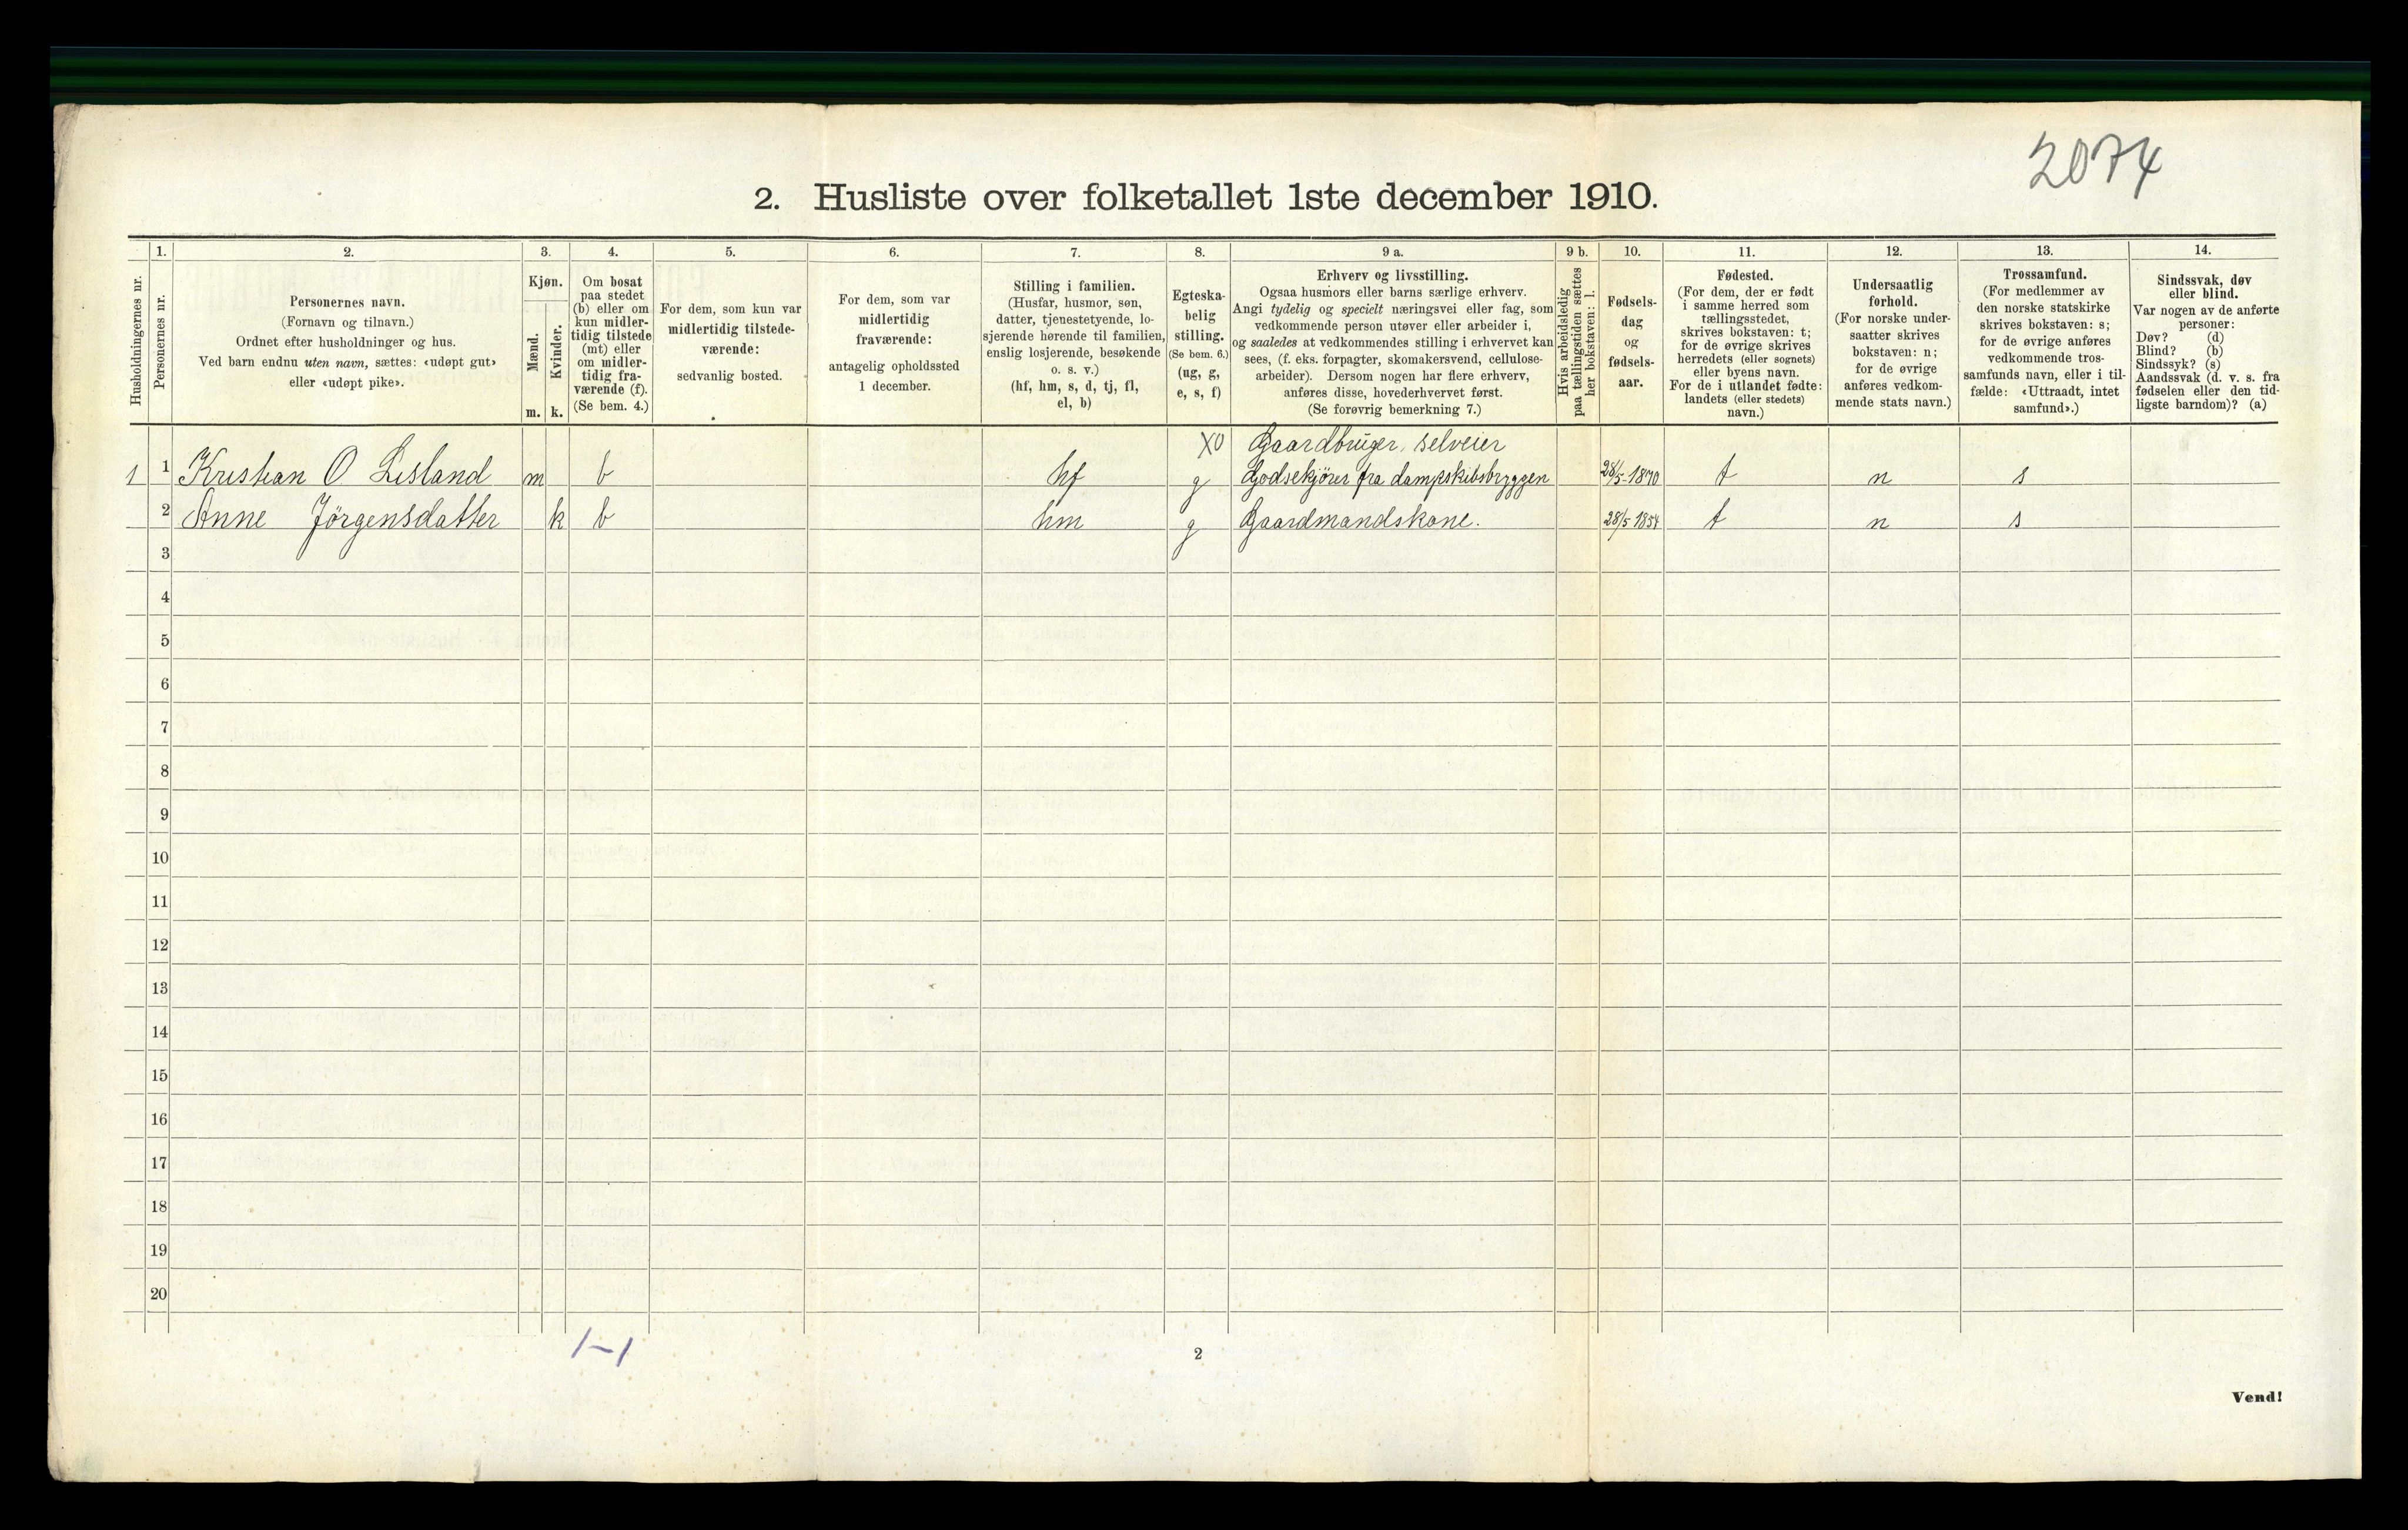 2074
2. Husliste over folketallet 1ste december 1910.
Husholdningernes nr.
1.
Personernes nr.
2.
Personernes navn.
(Fornavn og tilnavn.)
Ordnet efter husholdninger og hus.
Ved barn endnu uten navn, sættes: «udøpt gut»
eller «udøpt pike».
3.
Kjøn.
Mænd.
Kvinder.
m. k.
4.
Om bosat
paa stedet
(b) eller om
kun midler-
tidig tilstede
(mt) eller
om midler-
tidig fra-
værende (f).
(Se bem. 4.)
5.
For dem, som kun var
midlertidig tilstede-
værende:
sedvanlig bosted.
6.
For dem, som var
midlertidig
fraværende:
antagelig opholdssted
1 december.
7.
Stilling i familien.
(Husfar, husmor, søn,
datter, tjenestetyende, lo-
sjerende hørende til familien,
enslig losjerende, besøkende
o. s. v.)
(hf, hm, s, d, tj, fl,
el, b)
8.
Egteska-
belig
stilling.
(Se bem. 6.)
(ug, g,
e, s, f)
9 a.
Erhverv og livsstilling.
Ogsaa husmors eller barns særlige erhverv.
Angi tydelig og specielt næringsvei eller fag, som
vedkommende person utøver eller arbeider i,
og saaledes at vedkommendes stilling i erhvervet kan
sees, (f. eks. forpagter, skomakersvend, cellulose-
arbeider). Dersom nogen har flere erhverv,
anføres disse, hovederhvervet først.
(Se forøvrig bemerkning 7.)
9 b.
Hvis arbeidsledig
paa tællingstiden sættes
her bokstaven: l.
10.
Fødsels-
dag
og
fødsels-
aar.
11.
Fødested.
(For dem, der er født
i samme herred som
tællingsstedet,
skrives bokstaven: t;
for de øvrige skrives
herredets (eller sognets)
eller byens navn.
For de i utlandet fødte:
landets (eller stedets)
navn.)
12.
Undersaatlig
forhold.
(For norske under-
saatter skrives
bokstaven: n;
for de øvrige
anføres vedkom-
mende stats navn.)
13.
Trossamfund.
(For medlemmer av
den norske statskirke
skrives bokstaven: s;
for de øvrige anføres
vedkommende tros-
samfunds navn, eller i til-
fælde: «Uttraadt, intet
samfund».)
14.
Sindssvak, døv
eller blind.
Var nogen av de anførte
personer:
Døv? (d)
Blind? (b)
Sindssyk? (s)
Aandssvak (d. v. s. fra
fødselen eller den tid-
ligste barndom)? (a)
X0 Gaardbruger, selveier
1 1 Kristian O Lisland m b hf g Godsekjører fra dampskibsbryggen 28/5-1870 t n s
2 Anne Jörgensdatter k b hm g Gaardmandskone. 28/5 1854 t n s
3
4
5
6
7
8
9
10
11
12
13
14
15
16
17
18
19
20
1-1
2
Vend!